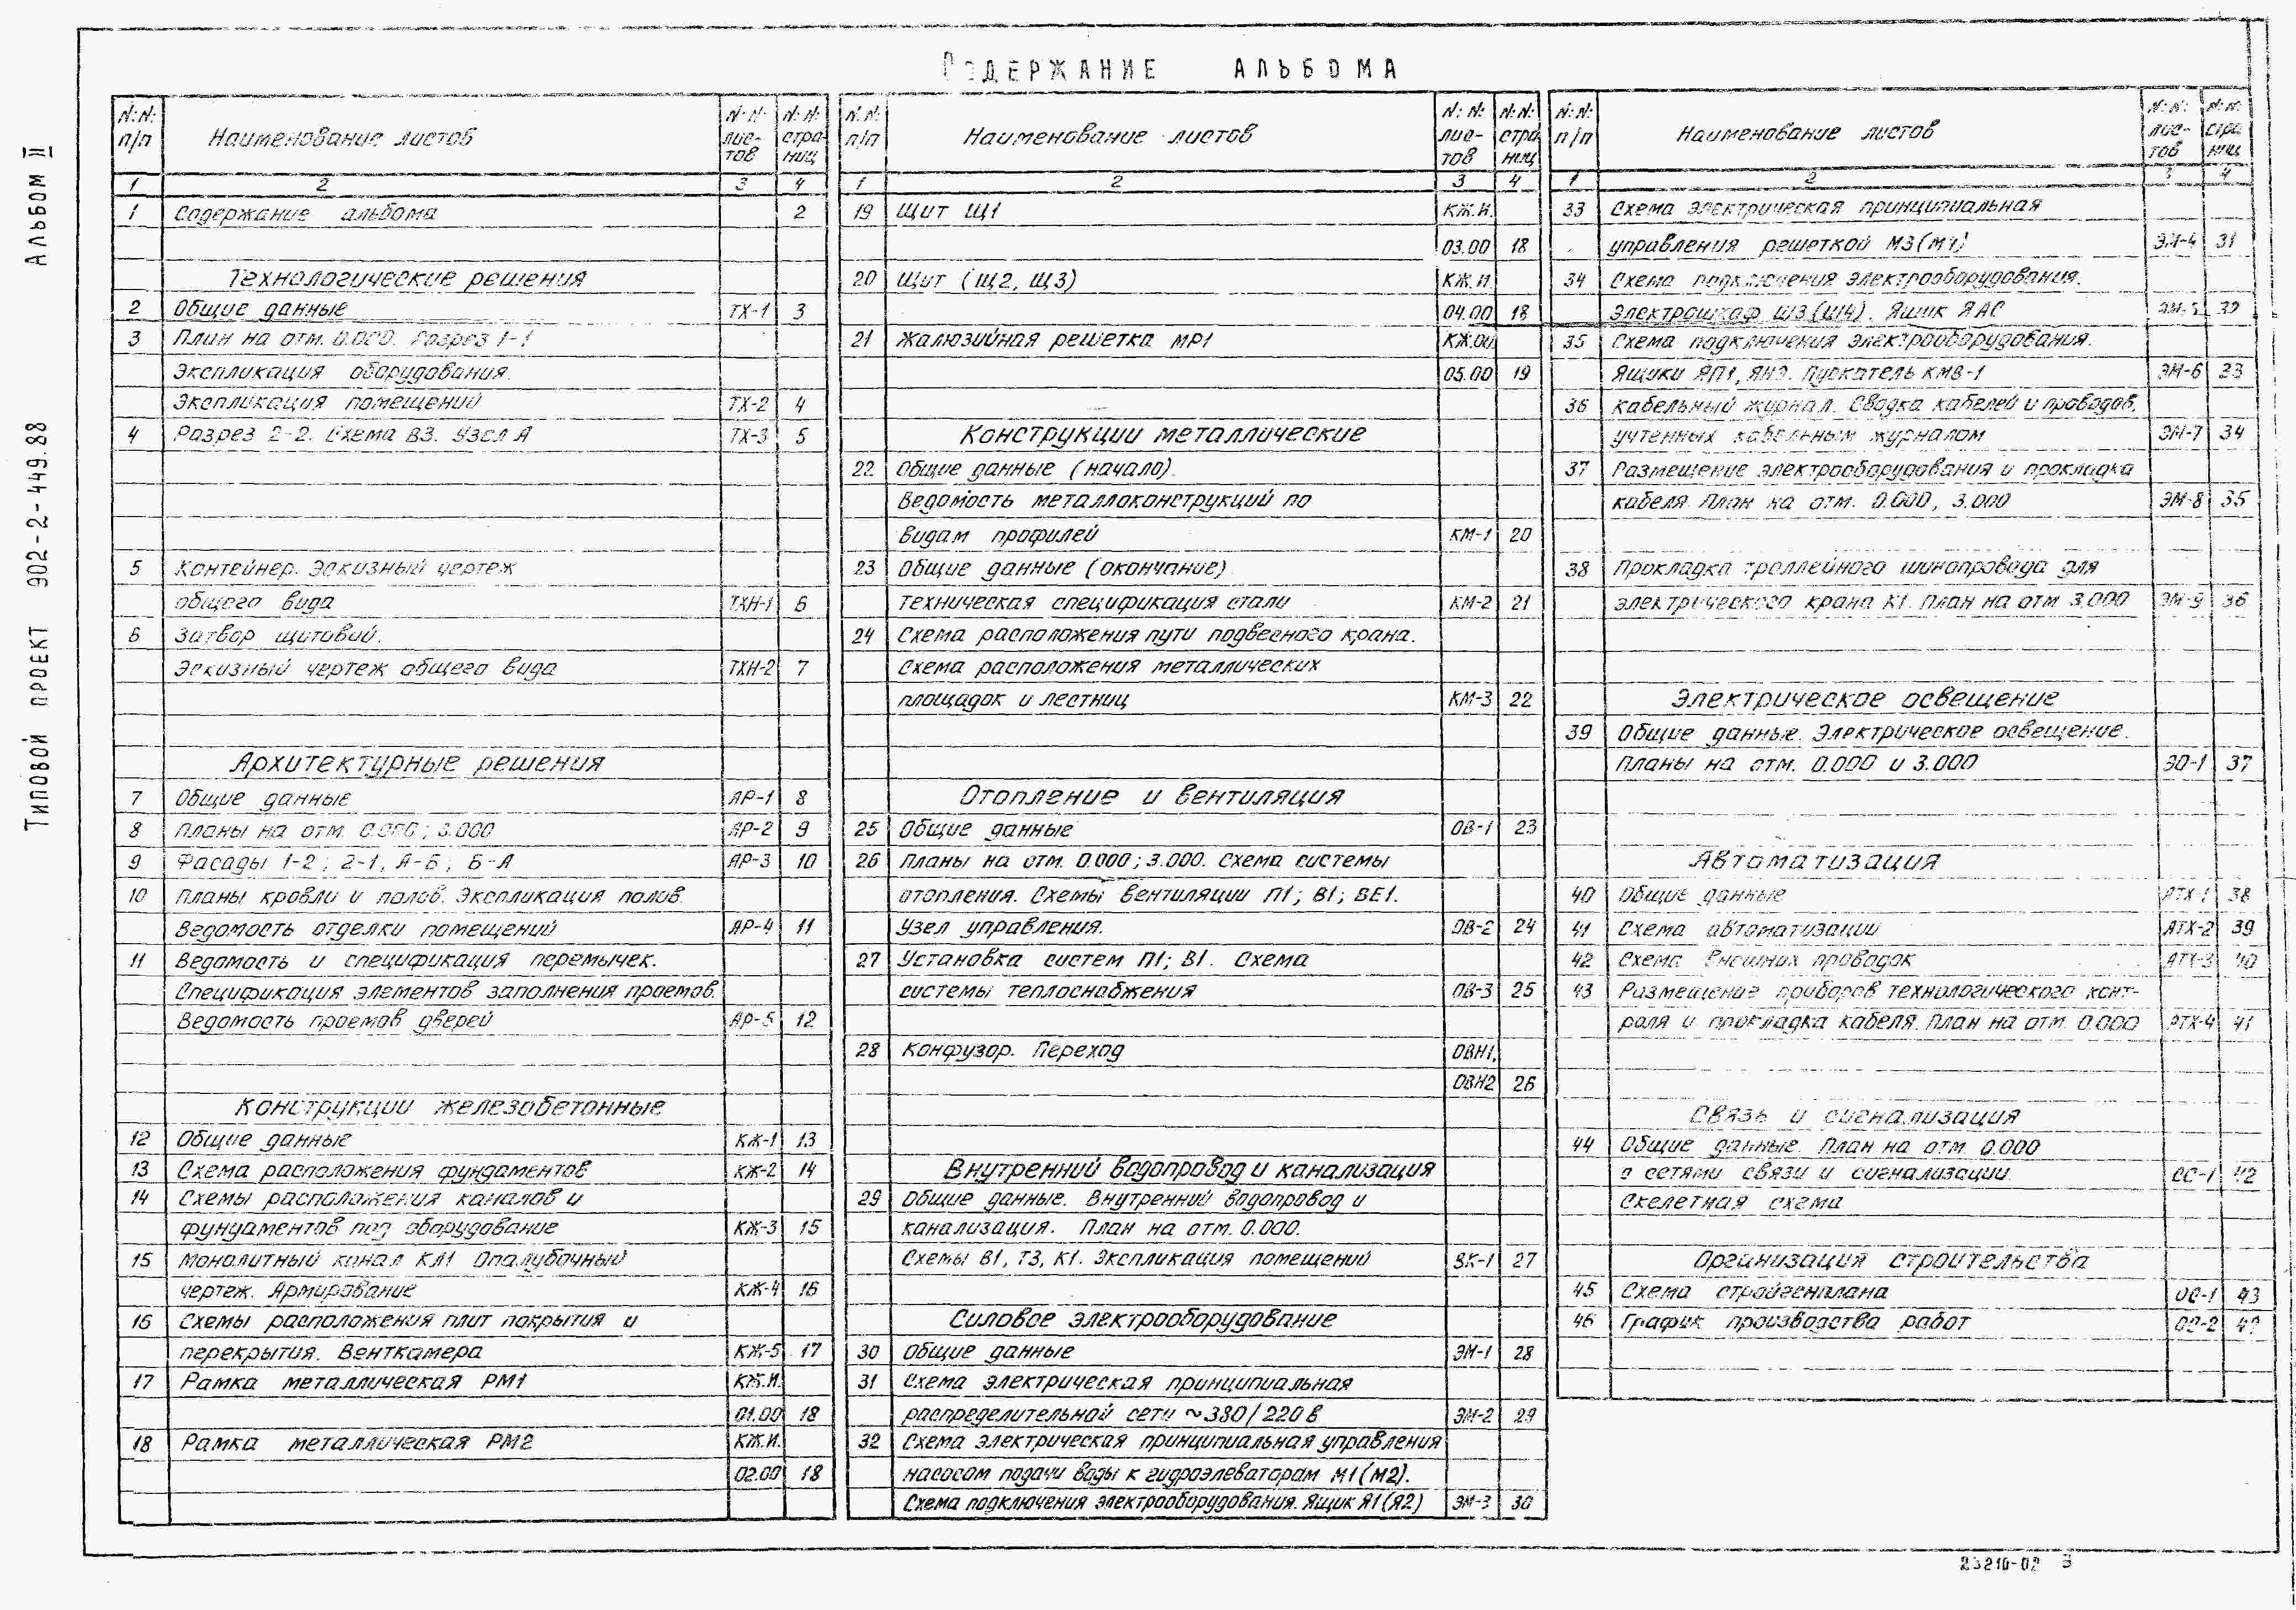 Содержание альбома
Типовой проект 902-2-449.88 Альбом II
N:N: п/п Наименование листов N:N: лис-тов N:N: стра ниц
1 2 3 4
1 Содержание альбома 2
Технологические решения
2 Общие данные ТХ-1 3
3 План на отм. 0.000. Разрез 1-1
Экспликация оборудования.
Экспликация помещений ТХ-2 4
4 Разрез 2-2. Схема В3. Узел А ТХ-3 5
5 Контейнер. Эскизный чертеж
общего вида ТХН-1 6
6 Затвор щитовой.
Эскизный чертеж общего вида ТХН-2 7
Архитектурные решения
7 Общие данные АР-1 8
8 Планы на отм. 0.000; 3.000 АР-2 9
9 Фасады 1-2; 2-1, А-Б; Б-А АР-3 10
10 Планы кровли и полов. Экспликация полов.
Ведомость отделки помещений АР-4 11
11 Ведомость и спецификация перемычек.
Спецификация элементов заполнения проемов.
Ведомость проемов дверей АР-5 12
Конструкции железобетонные
12 Общие данные КЖ-1 13
13 Схема расположения фундаментов КЖ-2 14
14 Схемы расположения каналов и
фундаментов под оборудование КЖ-3 15
15 Монолитный канал КЛ1 Опалубочный
чертеж. Армирование КЖ-4 16
16 Схемы расположения плит покрытия и
перекрытия. Венткамера КЖ-5 17
17 Рамка металлическая РМ1 КЖ.И.
01.00 18
18 Рамка металлическая РМ2 КЖ.И.
02.00 18
N:N: п/п Наименование листов N:N: лис-тов N:N: стра ниц
1 2 3 4
19 Щит Щ1 КЖ.И.
03.00 18
20 Щит (Щ2, Щ3) КЖ.И.
04.00 18
21 Жалюзийная решетка МР1
05.00 19
Конструкции металлические
22 Общие данные (начало).
Ведомость металлоконструкций по
видам профилей КМ-1 20
23 Общие данные (окончание)
Техническая спецификация стали КМ-2 21
24 Схема расположения пути подвесного крана.
Схема расположения металлических
площадок и лестниц КМ-3 22
Отопление и вентиляция
25 Общие данные ОВ-1 23
26 Планы на отм. 0.000; 3.000. Схема системы
отопления. Схемы вентиляции П1; В1; ВЕ1.
Узел управления. ОВ-2 24
27 Установка систем П1; В1. Схема
системы теплоснабжения ОВ-3 25
28 Конфузор. Переход ОВН1,
ОВН2 26
Внутренний водопровод и канализация
29 Общие данные. Внутренний водопровод и
канализация. План на отм. 0.000.
Схемы В1, Т3, К1. Экспликация помещений ВК-1 27
Силовое электрооборудование
30 Общие данные ЭМ-1 28
31 Схема электрическая принципиальная
распределительной сети ~380/220 в ЭМ-2 29
32 Схема электрическая принципиальная управления
насосом подачи воды к гидроэлеваторам М1(М2).
Схема подключения электрооборудования. Ящик Я1(Я2) ЭМ-3 30
N:N: п/п Наименование листов N:N: лис-тов N:N: стра ниц
1 2 3 4
33 Схема электрическая принципиальная
управления решеткой М3(М4) ЭМ-4 31
34 Схема подключения электрооборудования.
Электрошкаф Ш3(Ш4). Ящик ЯАС ЭМ-5 32
35 Схема подключения электрооборудования.
Ящики ЯП1, Пускатель КМВ-1 ЭМ-6 33
36 Кабельный журнал. Сводка кабелей и проводов,
учтенных кабельным журналом ЭМ-7 34
37 Размещение электрооборудования и прокладка
кабеля. План на отм. 0.000, 3.000 ЭМ-8 35
38 Прокладка троллейного шинопровода для
электрического крана К1. План на отм 3.000 ЭМ-9 36
Электрическое освещение
39 Общие данные. Электрическое освещение.
Планы на отм. 0.000 и 3.000 ЭО-1 37
Автоматизация
40 Общие данные АТХ-1 38
41 Схема автоматизации АТХ-2 39
42 Схема внешних проводок АТХ-3 40
43 Размещение приборов технологического конт-
роля и прокладка кабеля. План на отм. 0.000 АТХ-4 41
Связь и сигнализация
44 Общие данные. План на отм. 0.000
с сетями связи и сигнализации. СС-1 42
Скелетная схема
Организация строительства
45 Схема стройгенплана ОС-1 43
46 График производства работ ОС-2
23210-02 3